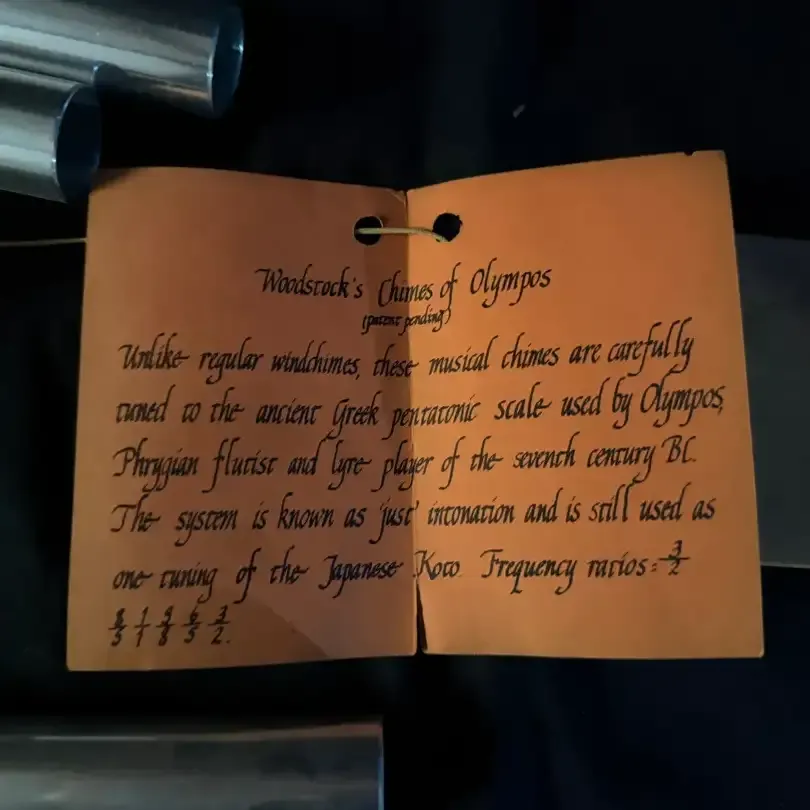 Woodstock's Chimes of Olympos
(patent pending)
Unlike regular windchimes, these musical chimes are carefully
tuned to the ancient Greek pentatonic scale used by Olympos,
Phrygian flutist and lyre player of the seventh century BC.
The system is known as 'just' intonation and is still used as
one tuning of the Japanese Koto. Frequency ratios = 3/2
8/5 1/1 9/8 6/5 3/2.